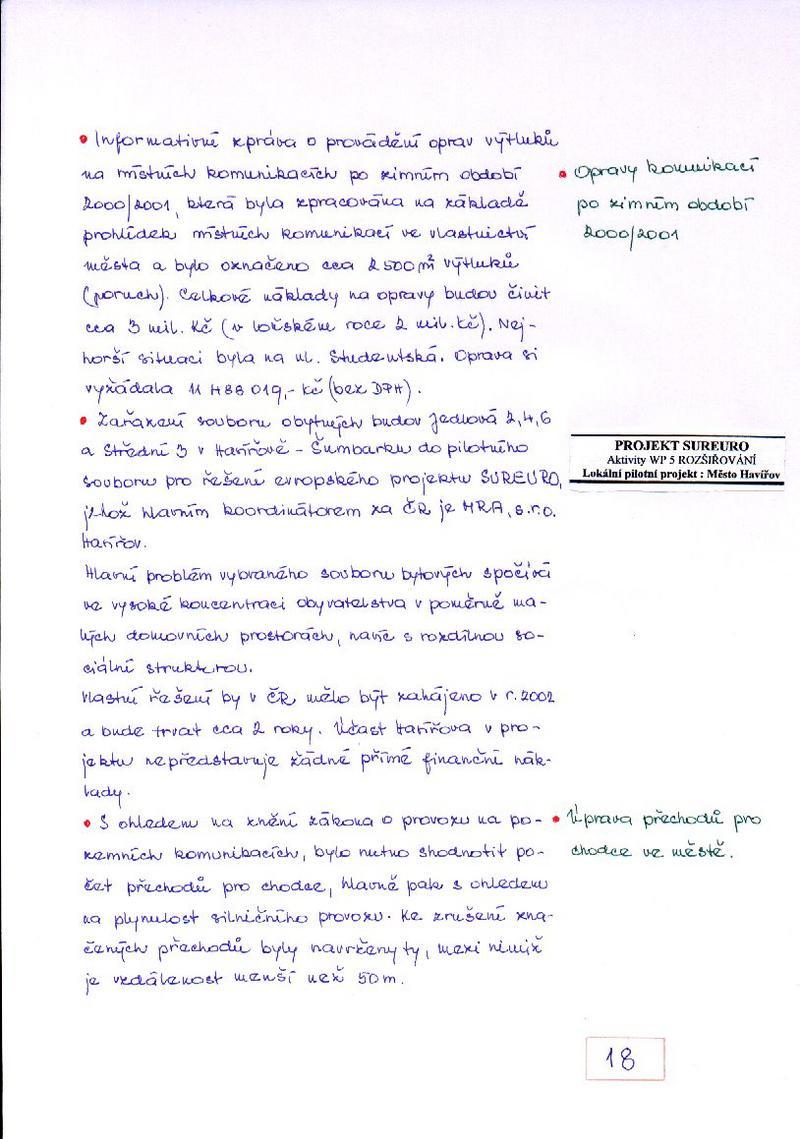 • Informativní zpráva o provádění oprav výtluků
na místních komunikacích po zimním období
2000/2001, která byla zpracována na základě
prohlídek místních komunikací ve vlastnictví
města a bylo označeno cca 2500m² výtluků
(poruch). Celkové náklady na opravy budou činit
cca 3 mil. Kč (v loňském roce 2 mil. Kč). Nej-
horší situací byla na ul. Studentská. Oprava si
vyžádala 11 488 019,- Kč (bez DPH).
• Zařazení souboru obytných budov Jedlová 2,4,6
a Střední 3 v Havířově - Šumbarku do pilotního
souboru pro řešení evropského projektu SUREURO,
jehož hlavním koordinátorem za ČR je MRA, s.r.o.
Havířov.
Hlavní problém vybraného souboru bytových spočívá
ve vysoké koncentraci obyvatelstva v poměrně ma-
lých domovních prostorách, navíc s rozdílnou so-
ciální strukturou.
Vlastní řešení by v ČR mělo být zahájeno v r. 2002
a bude trvat cca 2 roky. Účast Havířova v pro-
jektu nepředstavuje žádné přímé finanční nák-
lady.
• S ohledem na znění zákona o provozu na po-
zemních komunikacích, bylo nutno zhodnotit po-
čet přechodů pro chodce, hlavně pak s ohledem
na plynulost silničního provozu. Ke zrušení zna-
čených přechodů byly navrženy ty, mezi nimiž
je vzdálenost menší než 50m.
• Opravy komunikací
po zimním období
2000/2001
PROJEKT SUREURO
Aktivity WP 5 ROZŠIŘOVÁNÍ
Lokální pilotní projekt : Město Havířov
• Úprava přechodů pro
chodce ve městě.
18